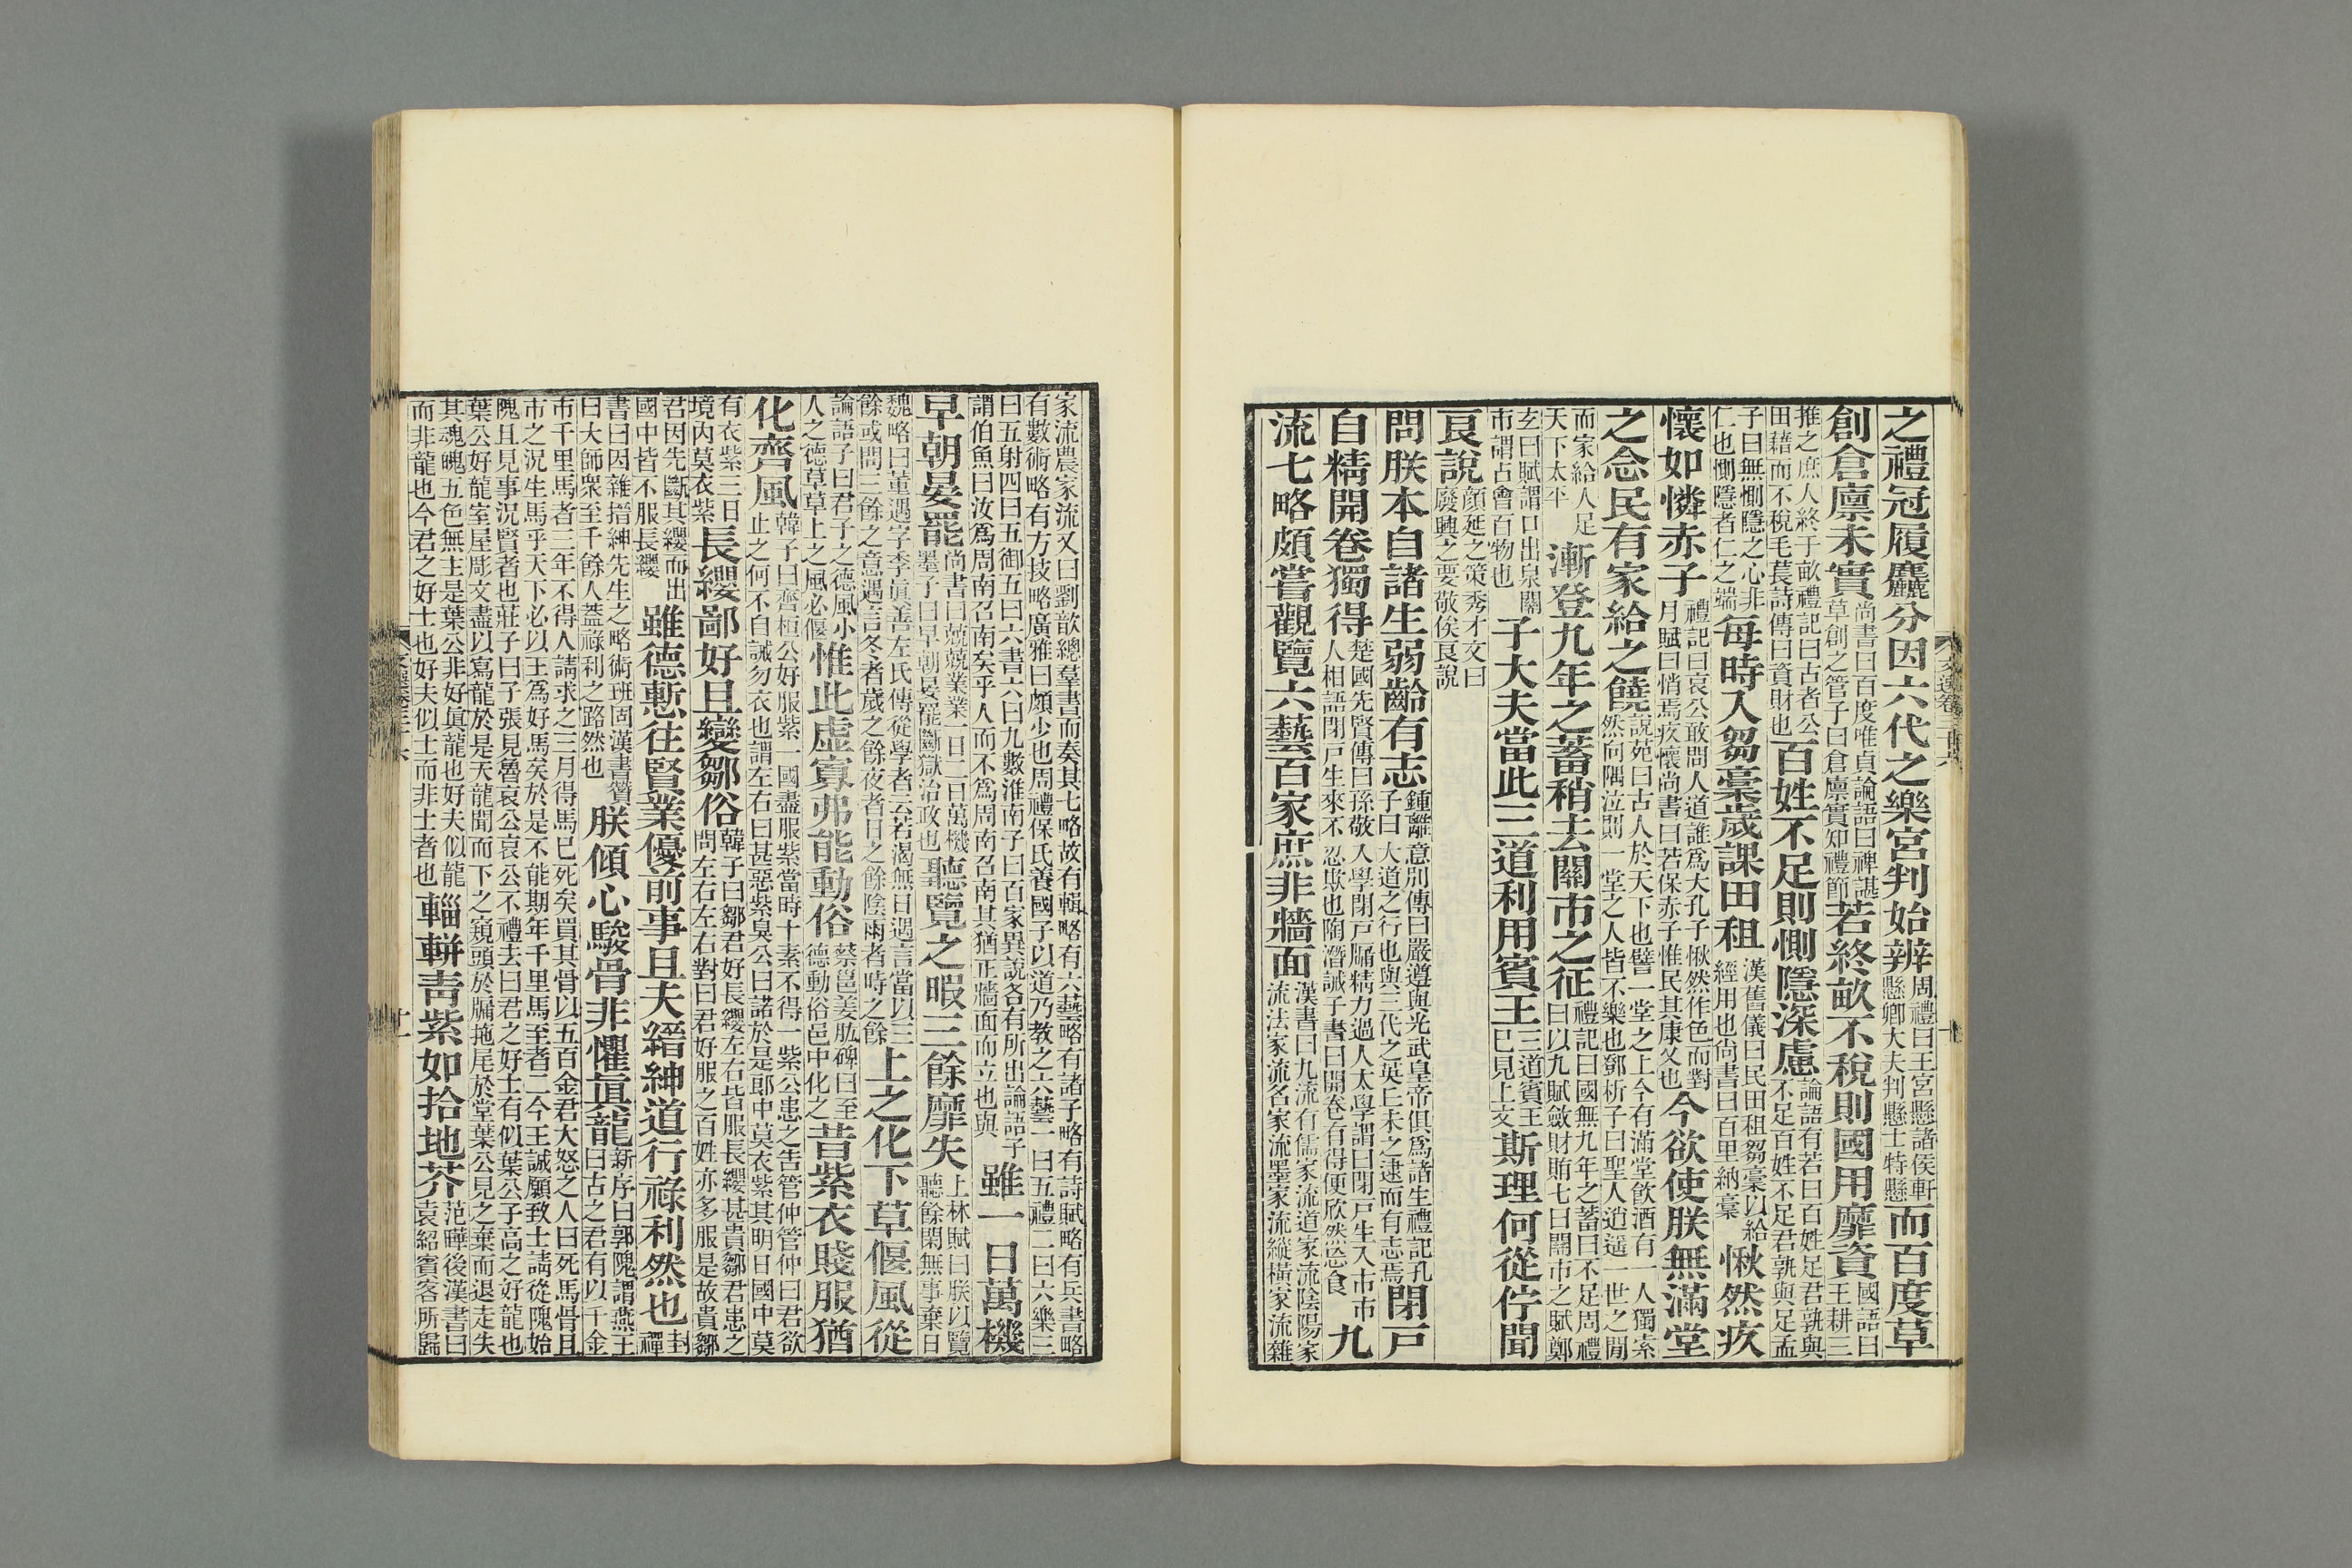 之禮冠履麤分因六代之樂宮判始辨周禮曰王宮懸諸侯軒懸卿大夫判懸士特懸而百度草
創倉廩未實尚書曰百度唯貞論語曰裨諶草創之管子曰倉廩實知禮節若終畝不稅則國用靡資國語曰王耕三
推之庶人終于畝禮記曰古者公田藉而不稅毛萇詩傳曰資財也百姓不足則惻隱深慮論語有若曰百姓足君孰與不足百姓不足君孰與足孟
子曰無惻隱之心非仁也惻隱者仁之端每時入芻稾歲課田租漢舊儀曰民田租芻稾以給經用也尚書曰百里納稾愀然疚
懷如憐赤子禮記曰哀公敢問人道誰爲大孔子愀然作色而對月賦曰悄焉疚懷尚書曰若保赤子惟民其康乂也今欲使朕無滿堂
之念民有家給之饒說苑曰古人於天下也譬一堂之上今有滿堂飲酒有一人獨索然向隅泣則一堂之人皆不樂也鄧析子曰聖人逍遥一世之閒
而家給人足天下太平漸登九年之蓄稍去關市之征禮記曰國無九年之蓄曰不足周禮曰以九賦斂財賄七曰關市之賦鄭
玄曰賦謂口出泉關市謂占會百物也子大夫當此三道利用賓王三道賓王已見上文斯理何從佇聞
良說顏延之策秀才文曰廢興之要敬俟良說
問朕本自諸生弱齡有志鍾離意別傳曰嚴遵與光武皇帝俱爲諸生禮記孔子曰大道之行也與三代之英丘未之逮而有志焉閉戶
自精開卷獨得楚國先賢傳曰孫敬入學閉戶牖精力過人太學謂曰閉戶生入市市人相語閉戶生來不忍欺也陶潛誡子書曰開卷有得便欣然忘食九
流七略頗嘗觀覽六藝百家庶非牆面漢書曰九流有儒家流道家流陰陽家流法家流名家流墨家流縱橫家流雜
家流農家流又曰劉歆總羣書而奏其七略故有輯略有六藝略有諸子略有詩賦略有兵書略有數術略有方技略廣雅曰頗少也周禮保氏養國子以道乃教之六藝一曰五禮二曰六樂三
曰五射四曰五御五曰六書六曰九數淮南子曰百家異說各有所出論語子謂伯魚曰汝爲周南召南矣乎人而不爲周南召南其猶正牆面而立也與雖一日萬機
早朝晏罷尚書曰兢兢業業一日二日萬機墨子曰早朝晏罷斷獄治政也聽覽之暇三餘靡失上林賦曰朕以覽聽餘閑無事棄日
魏略曰董遇字季眞善左氏傳從學者云若渴無日遇言當以三餘或問三餘之意遇言冬者歲之餘夜者日之餘陰雨者時之餘上之化下草偃風從
論語子曰君子之德風小人之德草草上之風必偃惟此虛寡弗能動俗蔡邕姜肱碑曰至德動俗邑中化之昔紫衣賤服猶
化齊風韓子曰齊桓公好服紫一國盡服紫當時十素不得一紫公患之告管仲管仲曰君欲止之何不自誡勿衣也謂左右曰甚惡紫臭公曰諾於是郎中莫衣紫其明日國中莫
有衣紫三日境內莫衣紫長纓鄙好且變鄒俗韓子曰鄒君好長纓左右皆服長纓甚貴鄒君患之問左右左右對曰君好服之百姓亦多服是故貴鄒
君因先斷其纓而出國中皆不服長纓雖德慙往賢業優前事且夫縉紳道行祿利然也封禪
書曰因雜搢紳先生之略術班固漢書贊曰大師衆至千餘人蓋祿利之路然也朕傾心駿骨非懼眞龍新序曰郭隗謂燕王曰古之君有以千金
市千里馬者三年不得人請求之三月得馬已死矣買其骨以五百金君大怒之人曰死馬骨且市之況生馬乎天下必以王爲好馬矣於是不能期年千里馬至者二今王誠願致士請從隗始
隗且見事況賢者也莊子曰子張見魯哀公哀公不禮去曰君之好士有似葉公子高之好龍也葉公好龍室屋彫文盡以寫龍於是天龍聞而下之窺頭於牖拖尾於堂葉公見之棄而退走失
其魂魄五色無主是葉公非好眞龍也好夫似龍而非龍也今君之好士也好夫似士而非士者也輜軿靑紫如拾地芥范曄後漢書曰袁紹賓客所歸